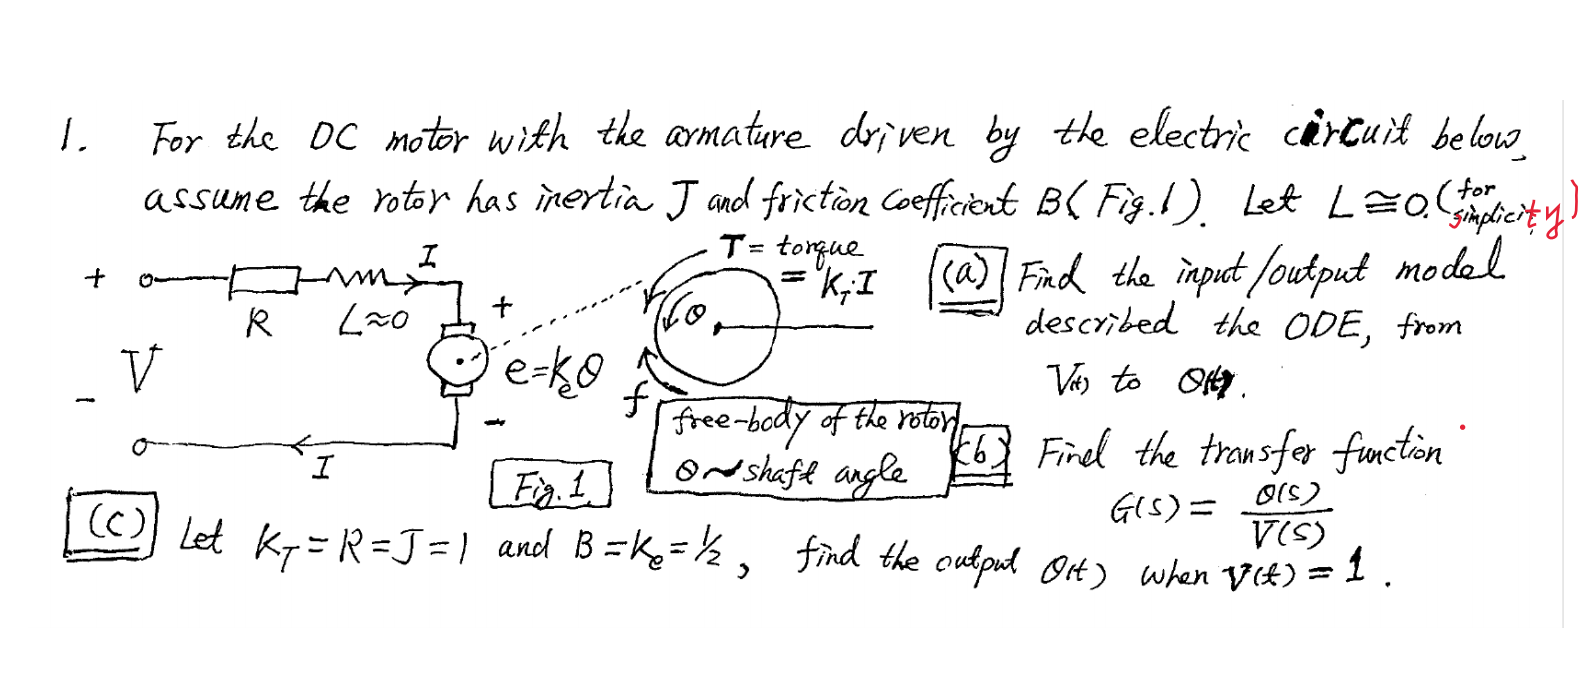 1. For the DC motor with the armature driven by the electric circuit below,
assume the rotor has inertia J and friction coefficient B (Fig.1). Let L ≅ 0. (for simplicity)
+ R L≈0 I + V - e=kₑθ - I
T = torque
= K_T·I
θ
f
free-body of the rotor
θ ~ shaft angle
Fig. 1
(a) Find the input/output model
described the ODE, from
V(t) to θ(t).
(b) Find the transfer function
G(s) = θ(s) / V(s)
(c) Let K_T = R = J = 1 and B = Kₑ = ½, find the output θ(t) when V(t) = 1.